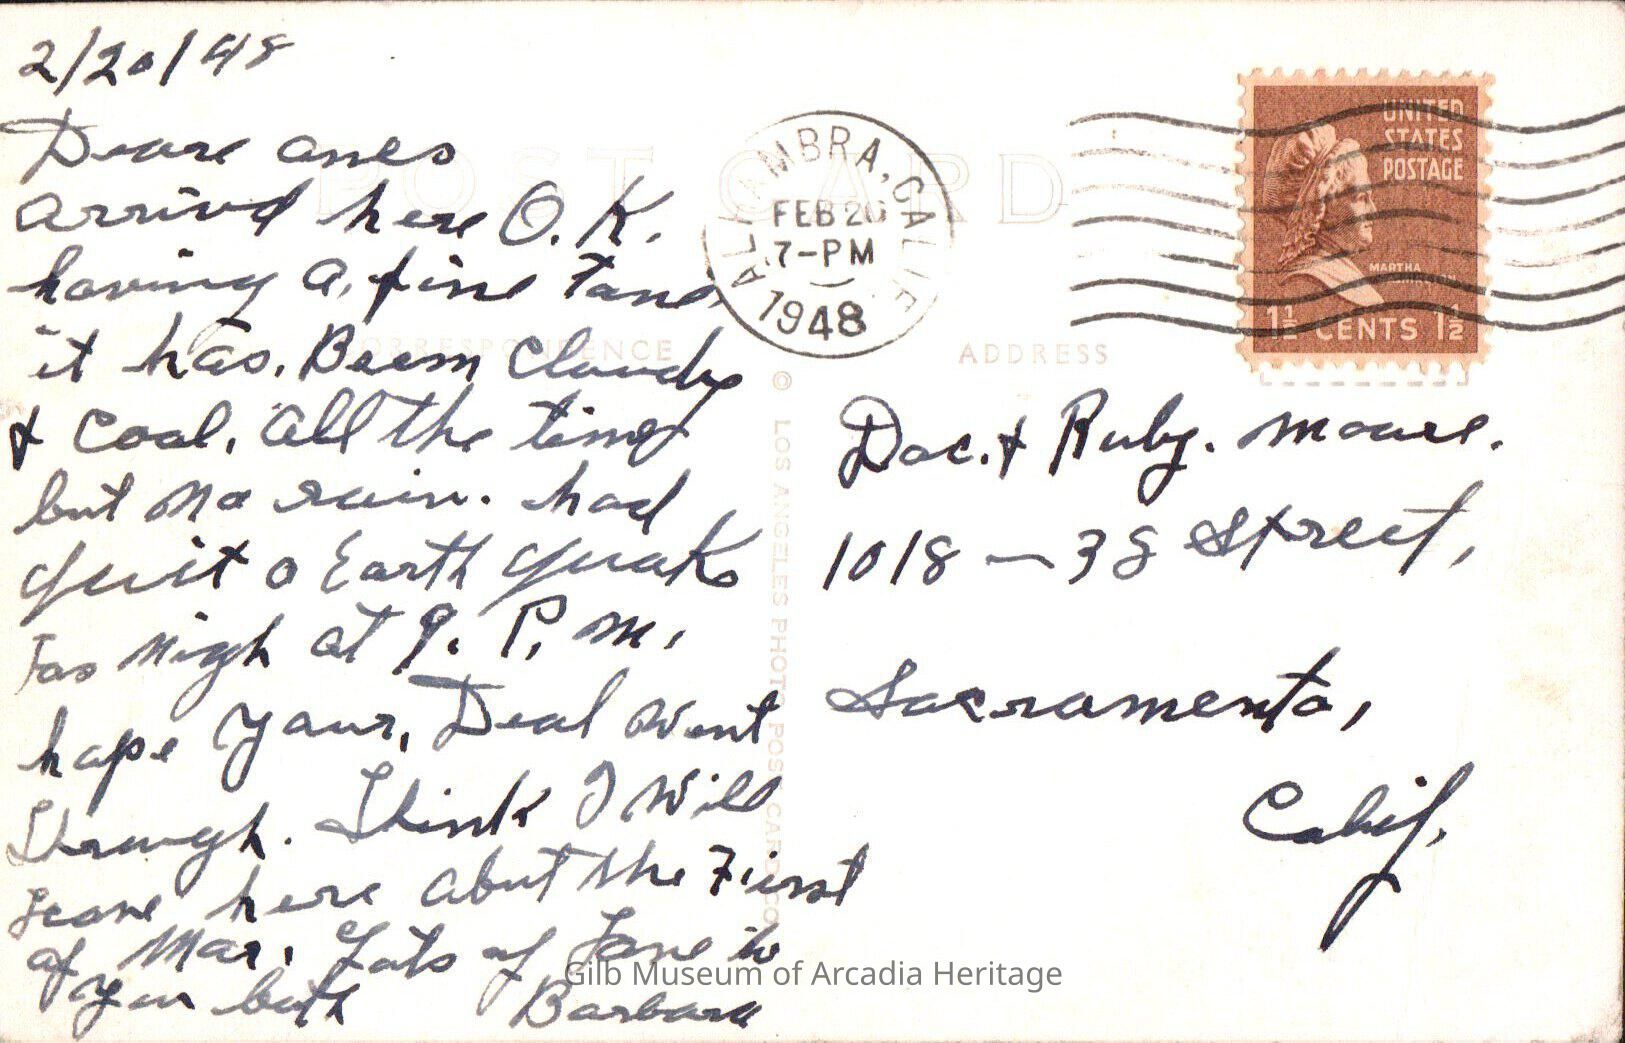 2/20/48
Deare ones
arrived here O.K.
having a, fine time,
it has. Beem Cloudy
& Cool, all the time
but no rain. had
quit a Earth quake
Las nigh at 9. P. m.
hope your, Deal went
through. think I will
Leave here abut the First
of Mar, Lots of Love to
you both
Barbara
POST CARD
CORRESPONDENCE
ADDRESS
© LOS ANGELES PHOTO POST CARD CO
ALHAMBRA, CALIF.
FEB 20
7-PM
1948
UNITED
STATES
POSTAGE
MARTHA
1½ CENTS 1½
Doc. & Ruby. Moore.
1018 — 38 Street,
Sacramento,
Calif.
Gilb Museum of Arcadia Heritage